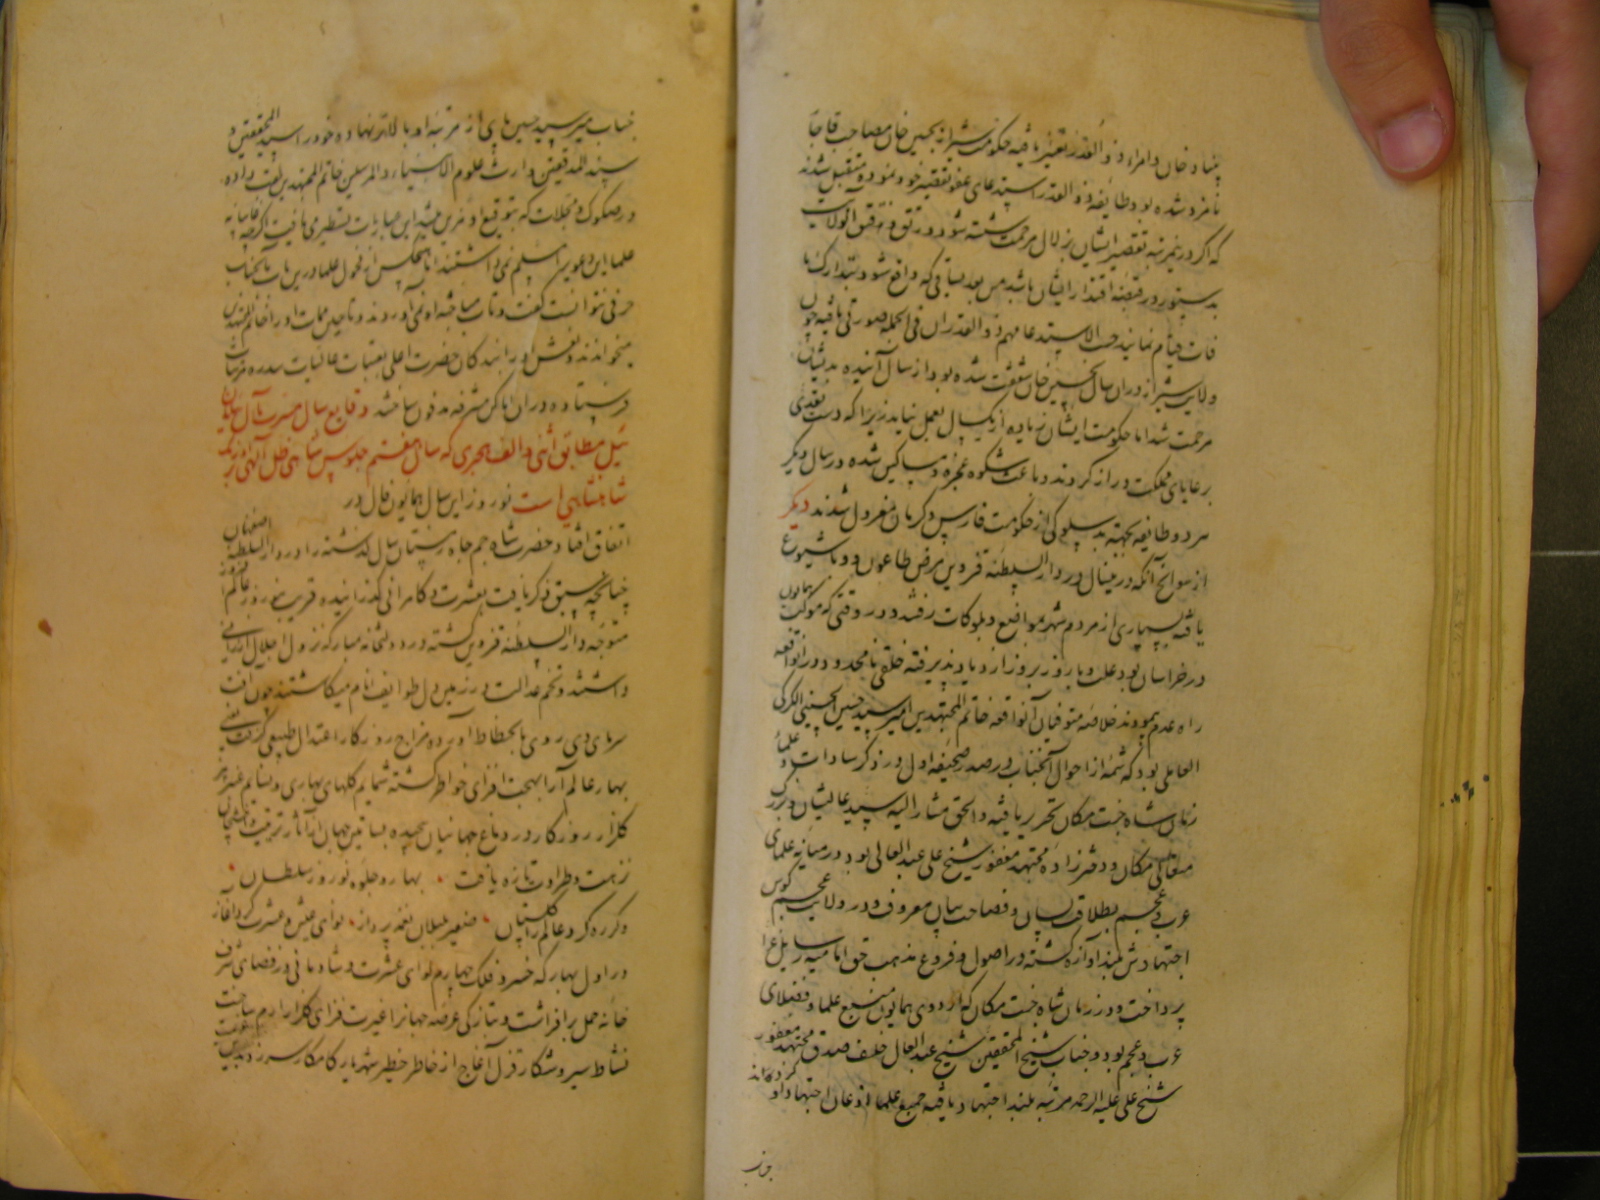 بنیاد خان و امراء ذوالقدر تغییر یافته حکومت شیراز به حسین خان مصاحب قاجار
نامزد شده بود و طایفه ذوالقدر استدعای عفو تقصیر خود نموده متقبل شدند
که اگر درین مرتبه تقصیر ایشان بزلال مرحمت شسته شود و رتق و فتق آن ولایت
بدستور در قبضه اقتدار ایشان باشد من بعد بساقی که واقع شود بتدارک ما
فات قیام نمایند حسب الاستدعا مهم ذوالقدران فی الجمله صورتی یافته چون
ولایت شیراز در آن سال بحسین خان شفقت شده بود از سال آینده بدیشان
مرحمت شد اما حکومت ایشان زیاده از یکسال بعمل نیامد زیرا که دست تعدی
برعایای مملکت دراز کردند و باعث شکوه عجزه و مساکین شده در سال دیگر
هر دو طایفه بجهته بدسلوکی از حکومت فارس و کرمان معزول شدند دیگر
از سوانح آنکه درینسال در دار السلطنه قزوین مرض طاعون و وبا شیوع
یافته بسیاری از مردم شهر بمواضع و بلوکات رفتند و در وقتی که موکب همایون
در خراسان بود علت وبا روز بروز ازدیاد پذیرفته خلقی نامحدود در آنواقعه
راه عدم پیمودند خلاصه متوفیان آنواقعه خاتم المجتهدین امیر سید حسین الحسینی الکرکی
العاملی بود که شمه از احوال آنجناب در صدر صحیفه اول در ذکر سادات و علماء
زمان شاه جنت مکان تحریر یافته والحق مشار الیه سید عالیشان و بزرگ
متعالی مکان و دخترزاده مجتهد مغفور شیخ علی عبد العالی بود در میانه علمای
عرب و عجم بطلاقت لسان و فصاحت بیان معروف و در ولایت عجم کوس
اجتهادش بلند آوازه گشته در اصول و فروع مذهب حق امامیه رسایل غرا
پرداخت و در زمان شاه جنت مکان که اردوی همایون منبع علما و فضلای
عرب و عجم بود و جناب شیخ المحققین شیخ عبد العال خلف صدق مجتهد مغفور
شیخ علی علیه الرحمه مرتبه بلند اجتهاد یافته جمیع علما اذعان اجتهاد او کرده‌اند
جناب میر سید حسین پای از مرتبه او بالاتر نهاده خود را سید المحققین و
سند المدققین وارث علوم الانبیاء و المرسلین خاتم المجتهدین لقب داده
در صکوک و سجلات که بتوقیع او مزین میشد این عبارات تسطیر می یافت اگرچه غایبانه
علما این دعوی مسلم نمی داشتند اما هیچکس از فحول علما درین باب با جناب
حرفی نتوانست گفت و تاب مباحثه او نمی آوردند و تا حین ممات او را خاتم المجتهدین
میخواندند و نعش او را بندگان حضرت اعلی بعتبات عالیات سدره مرتبات
فرستاده در آن اماکن مشرفه مدفون ساختند وقایع سال خسرت مآل ییلان
ئیل مطابق اثنی و الف هجری که سال هفتم جلوس شاهی ظل آلهی اورنگ
شاهنشاهی است نوروز این سال همایون فال در
اتفاق افتاد حضرت شاه جم جاه زمستان سال گذشته را در دار السلطنه اصفهان
چنانچه سبق ذکر یافت بعشرت و کامرانی گذرانیده قریب بنوروز عالم افروز
متوجه دار السلطنه قزوین گشته در دولتخانه مبارکه نزول اجلال ارزانی
داشتند و تخم عدالت در زمین دل طوایف انام میکاشتند چون آفت
سرمای دی روی بانحطاط آورد و مزاج روزگار اعتدال طبیعی گرفت نسیم
بهار عالم آرا بهجت افزای خواطر گشته شمایم گلهای بهاری و نسایم عنبربیز
گلزار روزگار در دماغ جهانیان پیچیده بساتین جهان از آثار تربیت
نزهت و طراوت تازه یافت . بهار و جلوه نوروز سلطان .
دگرره کرد عالم را گلستان . صفیر بلبلان نغمه پرداز . نوای عیش و عشرت کرد آغاز
در اول بهار که خسرو فلک چهارم لوای عشرت و شادمانی در فضای شرف
خانه حمل برافراشت و بتازگی عرصه جهانرا غیرت فزای گلزار ارم ساخت
نشاط سیر و شکار قزل آغاج از خاطر خطیر شهریار کامکار سر زد